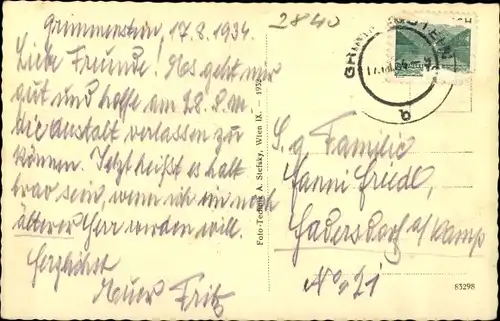 Grimmenstein, 17.8.1934.
Liebe Freunde! Es geht mir
gut und hoffe am 28. d. M.
die Anstalt verlassen zu
können. Jetzt heißt es halt
brav sein, wenn ich ein noch
älterer Herr werden will.
Herzlichst
Fritz
2840
b
S. g. Familie
Hanni Friedl,
Hadersdorf a/Kamp
No. 21
Foto-Technik A. Stefsky, Wien IX. — 1932
83298